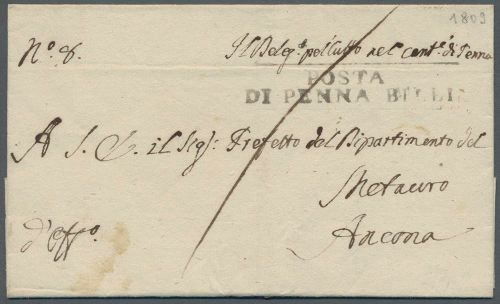 1809
N.º 8. Il Deleg.º pel Culto nel Cant.e di Penna
POSTA
DI PENNA BILLI
A S. E. il Sig.: Prefetto del Dipartimento del
Metauro
d'Off.º
Ancona